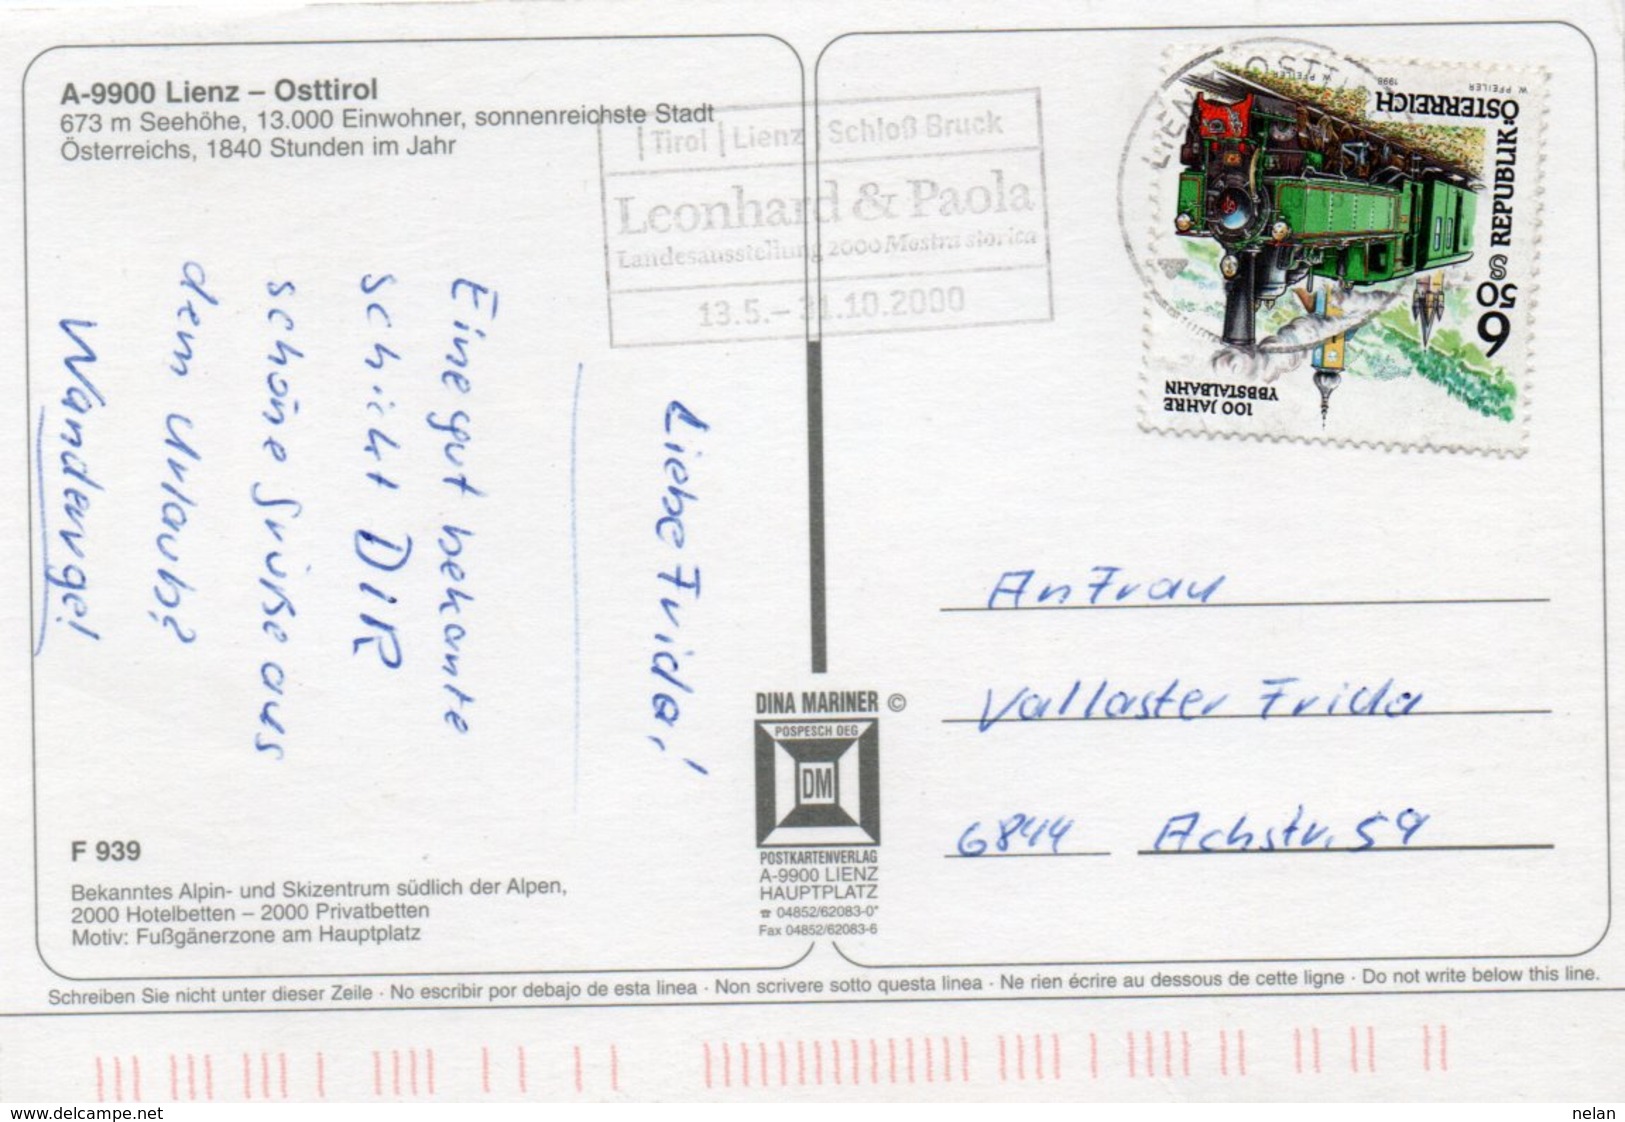 A-9900 Lienz – Osttirol
673 m Seehöhe, 13.000 Einwohner, sonnenreichste Stadt
Österreichs, 1840 Stunden im Jahr
| Tirol | Lienz | Schloß Bruck
Leonhard & Paola
Landesausstellung 2000 Mostra storica
13.5.– 31.10.2000
LIENZ OSTTIROL
W. PFEILER 1998 W. PFEILER
REPUBLIK ÖSTERREICH
6 50 S
100 JAHRE
YBBSTALBAHN
Liebe Frida!
Eine gut bekannte
schickt DIR
schöne Grüße aus
dem Urlaub?
An Frau
Vallaster Frida
6844 Achstr. 59
DINA MARINER ©
POSPESCH OEG
DM
POSTKARTENVERLAG
A-9900 LIENZ
HAUPTPLATZ
☎ 04852/62083-0*
Fax 04852/62083-6
F 939
Bekanntes Alpin- und Skizentrum südlich der Alpen,
2000 Hotelbetten – 2000 Privatbetten
Motiv: Fußgänerzone am Hauptplatz
Schreiben Sie nicht unter dieser Zeile · No escribir por debajo de esta linea · Non scrivere sotto questa linea · Ne rien écrire au dessous de cette ligne · Do not write below this line.
www.delcampe.net
nelan